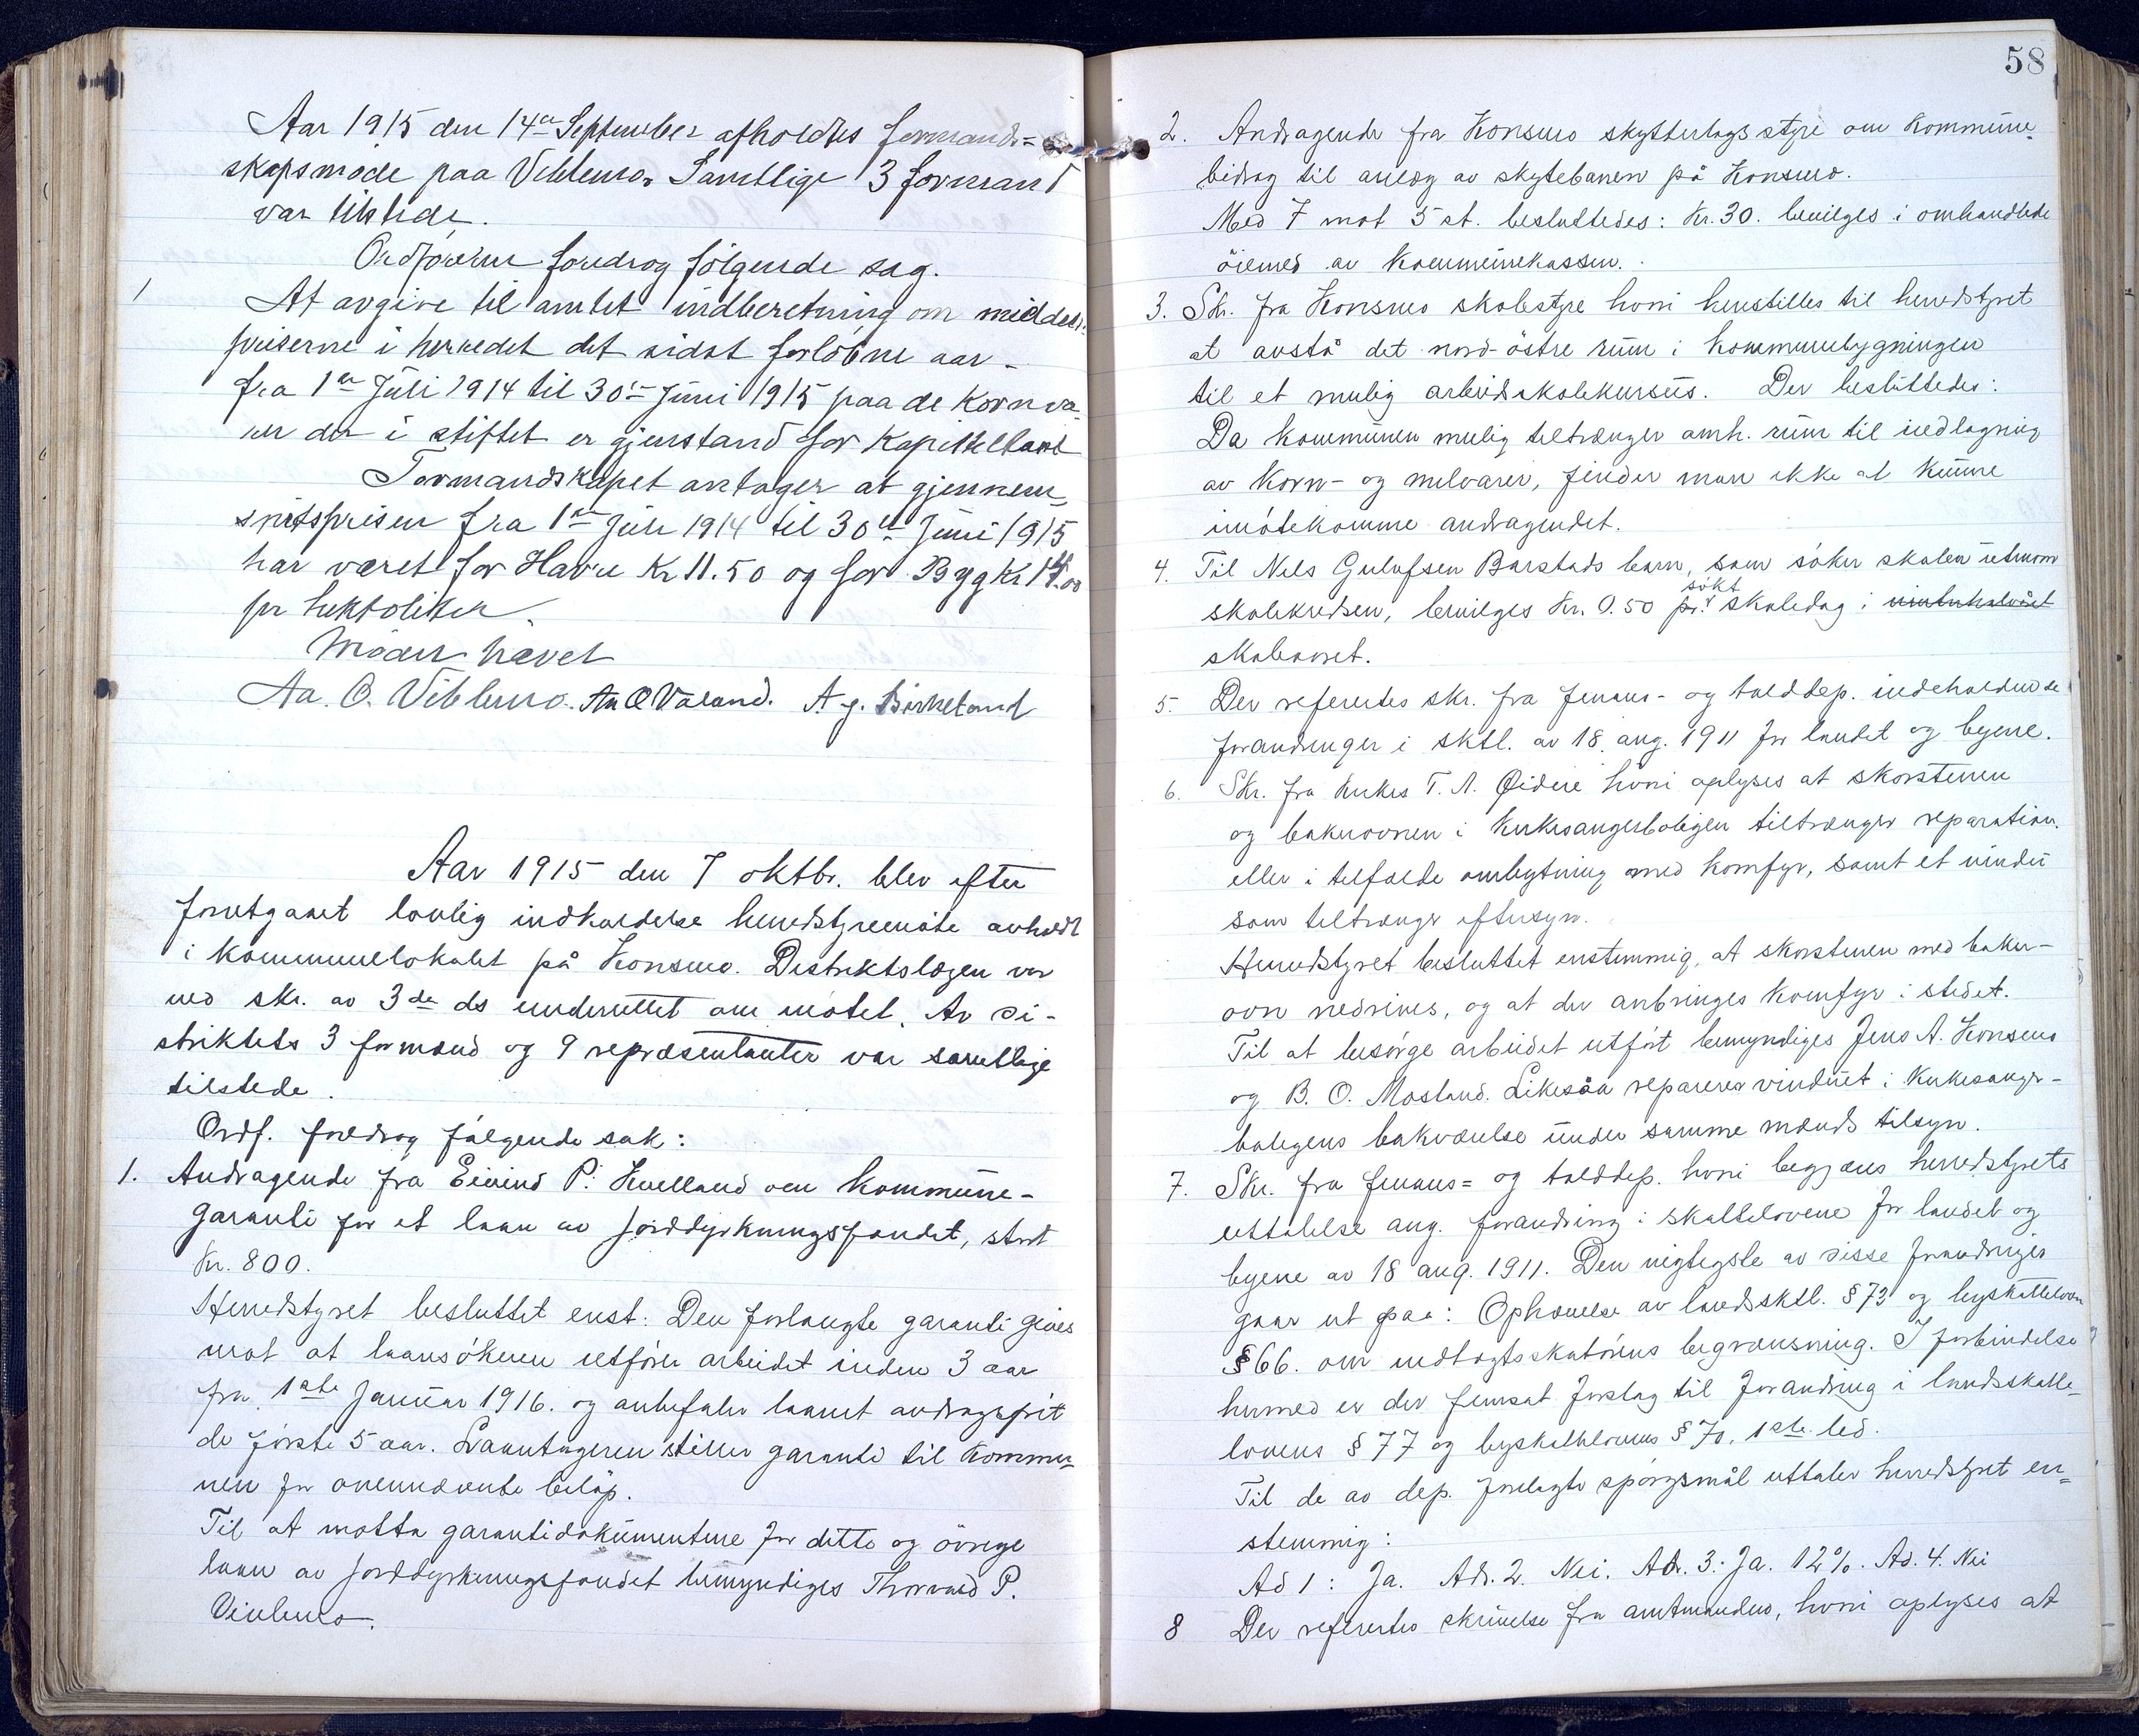 Aar 1915 den 14de September afholdtes formands=
skapsmøde paa Viblemo. Samtlige 3 formænd
var tilstede.
Ordføreren foredrog følgende sag.
1 At avgive til amtet indberetning om middel-
priserne i herredet det sidst forløbne aar -
fra 1ste Juli 1914 til 30te Juni 1915 paa de Kornva-
rer der i stiftet er gjenstand for Kapitelstakst
Formandskapet antager at gjennem-
snitsprisen fra 1ste Juli 1914 til 30te Juni 1915
har været for Havre Kr 11.50 og for Bygg Kr 14.00
pr hektoliter.
Mødet hævet
Aa. O. Viblemo. Aa O Valand. A. g. Birkeland
Aar 1915 den 7 oktbr. blev efter
forutgaaet lovlig indkaldelse herredstyremöte avholdt
i kommunelokalet på Konsmo. Distriktslægen var
ved skr. av 3de ds underrettet om mötet. Av di-
striktets 3 formænd og 9 repræsentanter var samtlige
tilstede.
Ordf. foredrog følgende sak:
1. Andragende fra Eivind P. Kvelland om kommune-
garanti for et laan av jorddyrkningsfondet, stort
Kr. 800.
Herredstyret besluttet enst: Den forlangte garanti gives
mot at laansökeren utförer arbeidet inden 3 aar
fra 1ste Januar 1916. og anbefaler laanet avdragsfrit
de förste 5 aar. Laantageren stiller garanti til kommu-
nen for ovennævnte beløp.
Til at motta garantidokumentene for dette og övrige
laan av jorddyrkningsfondet bemyndiges Thorvald P.
Viblemo.
58
2. Andragende fra Konsmo skytterlags styre om kommune-
bidrag til anlæg av skytebanen på Konsmo.
Med 7 mot 5 st. besluttedes: Kr. 30. bevilges i omhandlede
öiemed av kommunekassen.
3. Skr. fra Konsmo skolestyre hvori henstilles til herredstyret
at avstå det nord-östre rum i kommunebygningen
til et mulig arbeidsskolekursus. Der besluttedes:
Da kommunen mulig tiltrænger omh. rum til indlagring
av korn- og melvarer, finder man ikke at kunne
imötekomme andragendet.
4. Til Nels Gulufsen Barstads barn, som söker skolen utenom
skolekredsen, bevilges Kr. 0.50 pr. sökt skoledag i vinterhalvåret
skoleaaret.
5. Der refertes skr. fra finans- og tolddep. indeholdende
forandringer i sktl. av 18. aug. 1911 for landet og byene.
6. Skr. fra kirkes. T. A. Øidne hvori oplyses at skorstenen
og bakerovnen i kirkesangerboligen tiltrænger reparation.
eller i tilfælde ombytning med komfyr, samt et vindu
som tiltrænger eftersyn.
Herredstyret besluttet enstemmig, at skorstenen med baker-
ovn nedrives, og at der anbringes komfyr i stedet.
Til at besörge arbeidet utfört bemyndiges Jens A. Konsmo
og B. O. Mosland. Likesåa repareres vinduet i kirkesanger-
boligens bakværelse under samme mænds tilsyn.
7. Skr. fra finans= og tolddep. hvori begjæres herredstyrets
uttalelse ang. forandring i skattelovene for landet og
byene av 18 aug. 1911. Den vigtigste av disse forandringer
gaar ut paa: Ophævelse av landssktl. § 73 og byskatteloven
§ 66. om indtægtsskatörens begrænsning. I forbindelse
hermed er der fremsat forslag til forandring i landsskatte-
lovens § 77 og byskattelovens § 70, 1ste led.
Til de av dep. forelagte spörgsmål uttaler herredstyret en=
stemmig:
Ad 1: Ja. Ad. 2. Nei. Ad. 3: Ja. 12%. Ad. 4. Nei
8 Der refertes skrivelse fra amtmanden, hvori oplyses at